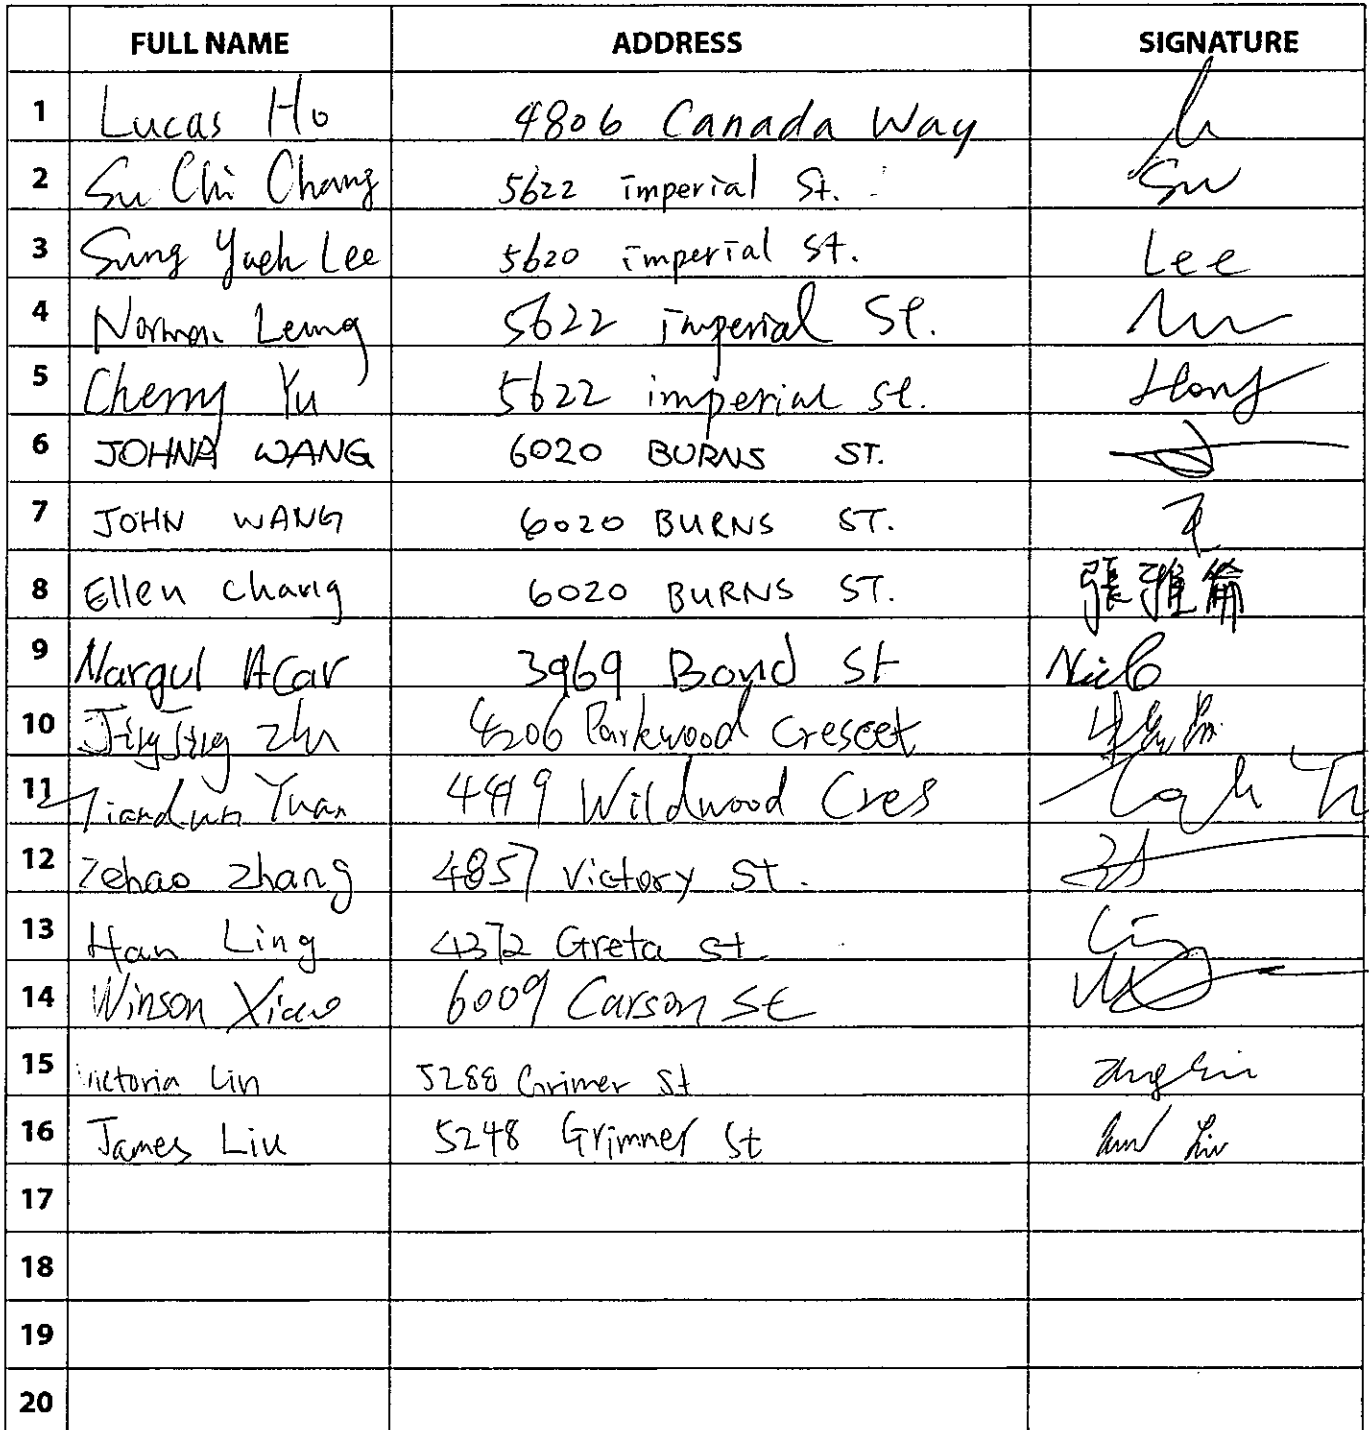 FULL NAME ADDRESS SIGNATURE
1 Lucas Ho 4806 Canada Way
2 Su Chi Chang 5622 imperial St. Su
3 Sung Yueh Lee 5620 imperial St. Lee
4 Norman Leung 5622 imperial St.
5 Cherry Yu 5622 imperial St.
6 JOHNA WANG 6020 BURNS ST.
7 JOHN WANG 6020 BURNS ST.
8 Ellen Chang 6020 BURNS ST. 張雅倫
9 Nargul Acar 3969 Bond St
10 JingJing Zhu 4206 Parkwood Crescet
11 Yuan Wildwood Cres
12 Zehao Zhang 4857 Victory St.
13 Han Ling 4372 Greta St
14 Winson Xiao 6009 Carson St
15 Victoria Lin 5288 Grimer St
16 James Liu 5248 Grimmer St
17
18
19
20